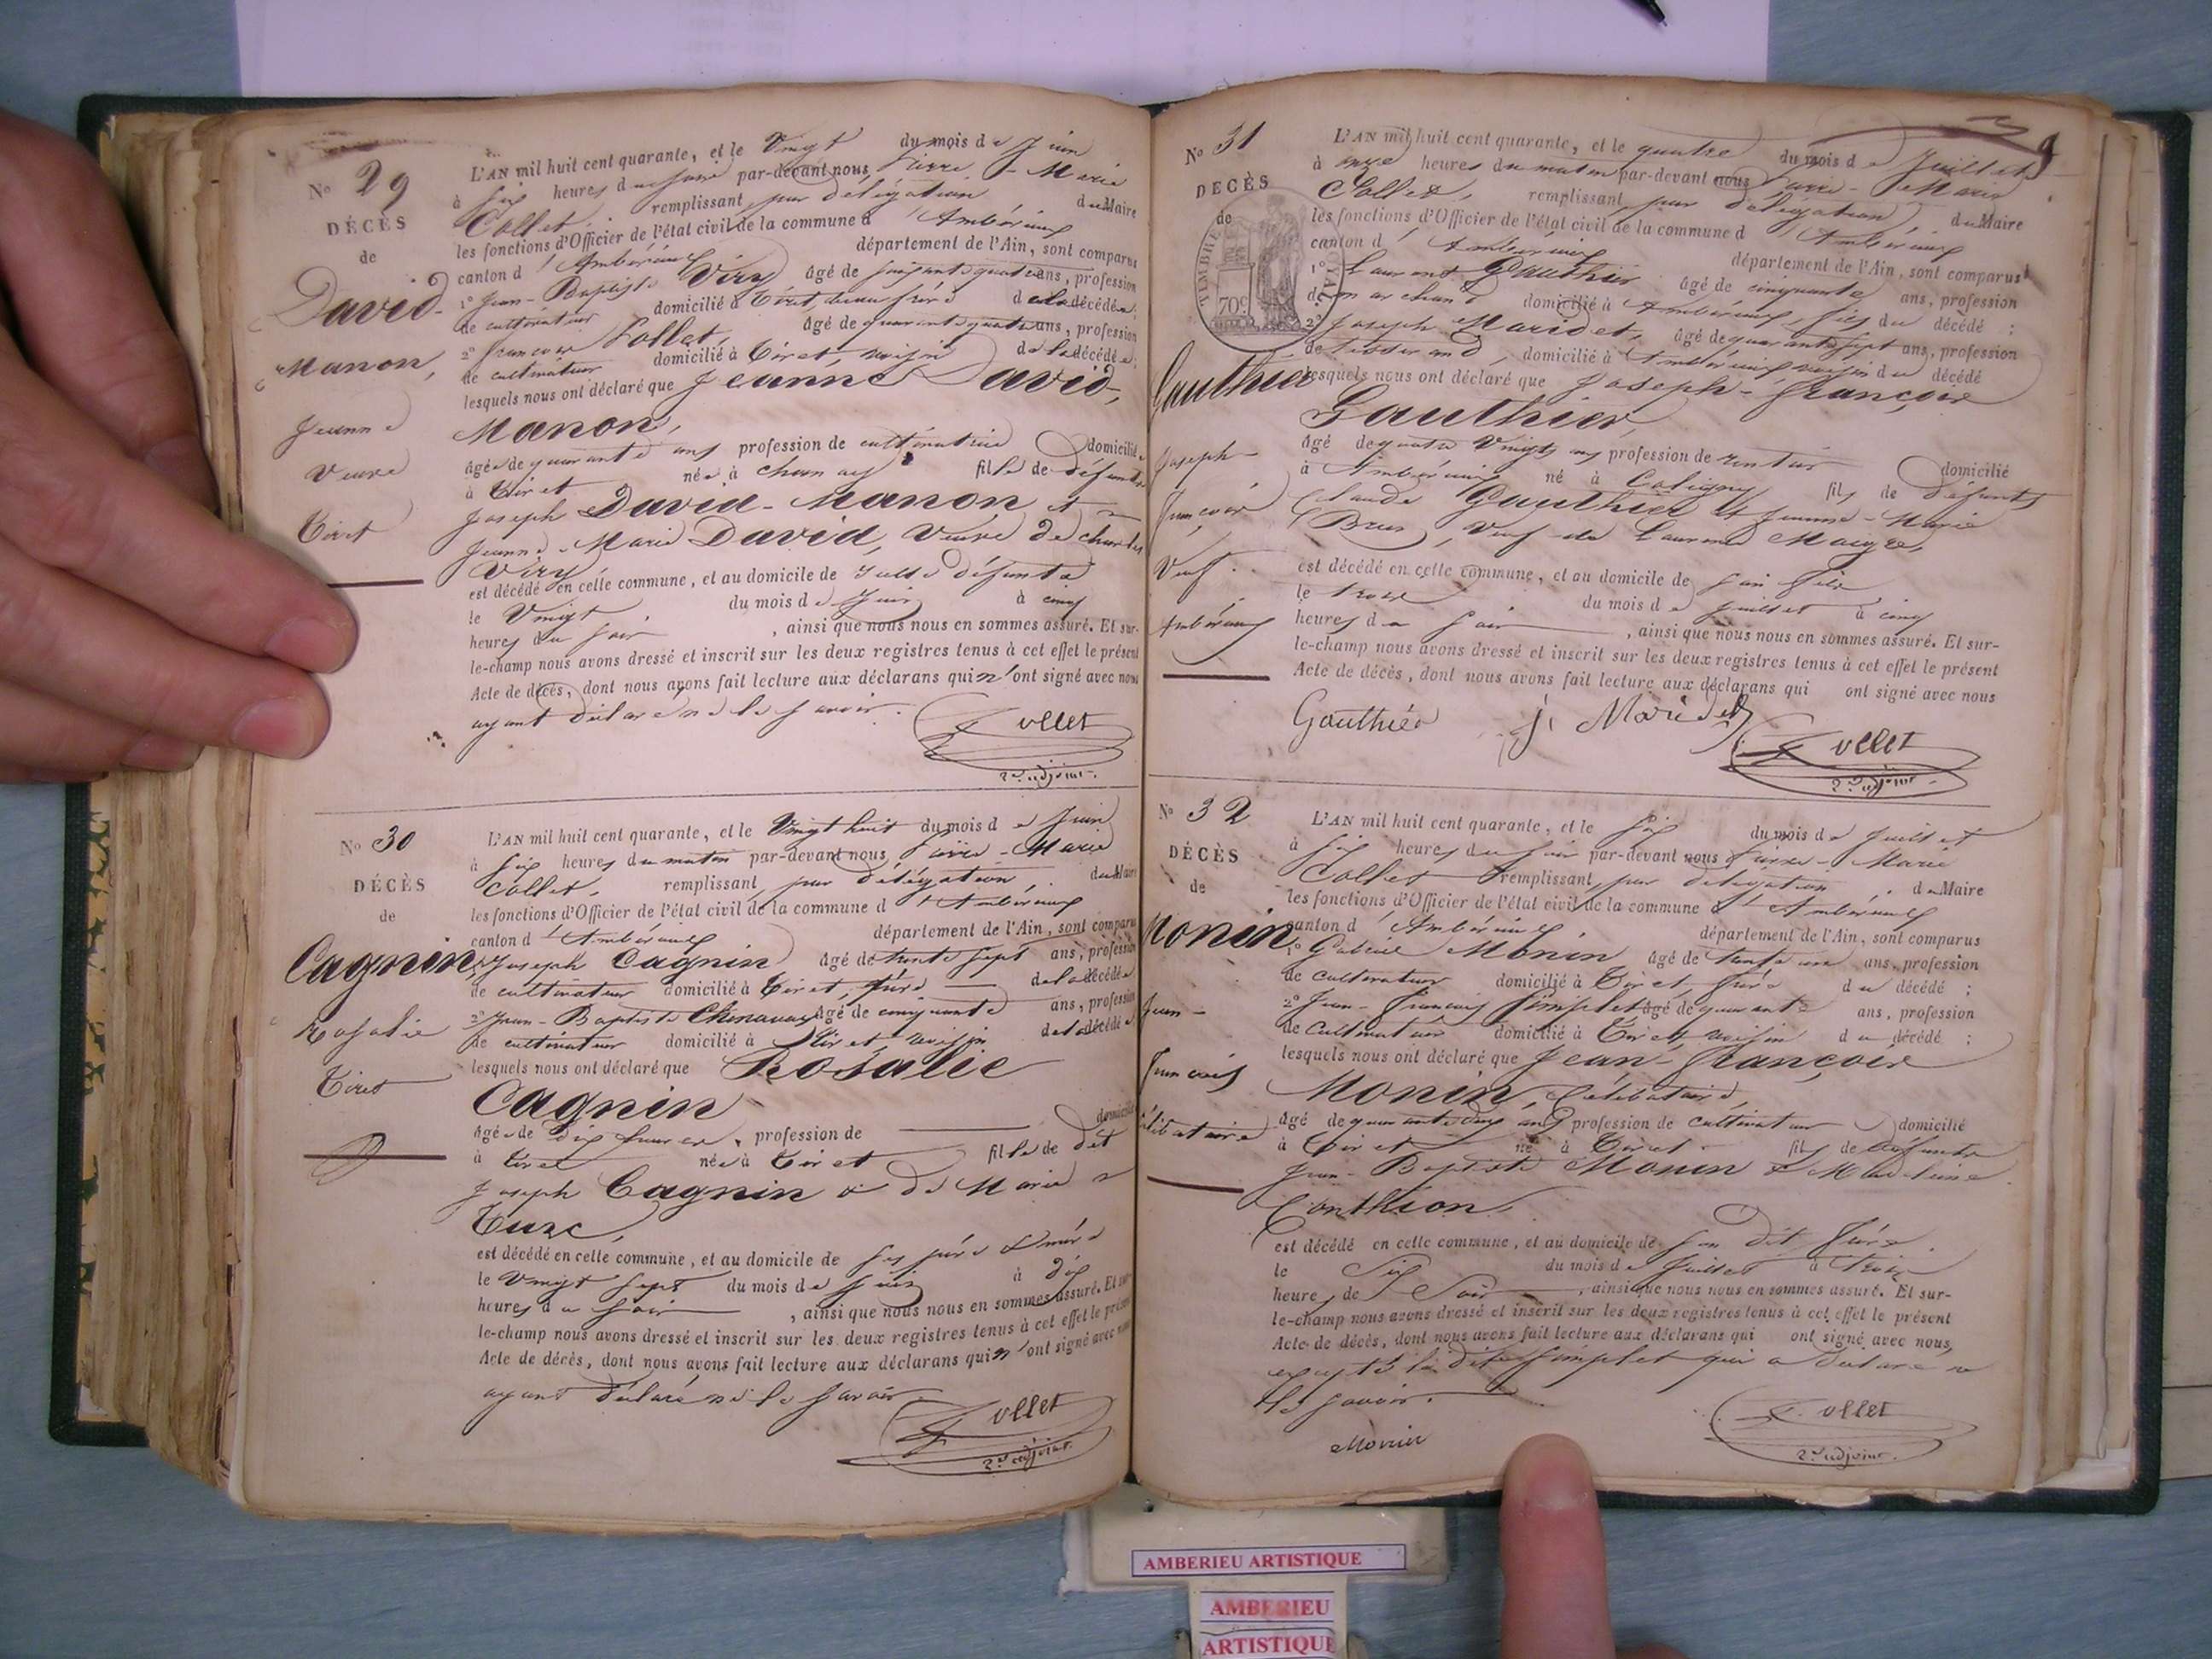 No 29
DÉCÈS
de
David-
Manon,
Jeanne
Veuve
Tiret
L'AN mil huit cent quarante, et le Vingt du mois de Juin
à six heures du soir par-devant nous Pierre-Marie
Collet, remplissant, par délégation du Maire
les fonctions d'Officier de l'état civil de la commune d'Ambérieux
canton d'Ambérieux département de l'Ain, sont comparus
1º Jean-Baptiste Viry âgé de soixante quatre ans, profession
de cultivateur domicilié à Tiret, beau frère de la décédée;
2º François Collet, âgé de quarante quatre ans, profession
de cultivateur domicilié à Tiret, voisin de la décédée;
lesquels nous ont déclaré que Jeanne David-
Manon,
âgée de quarante ans profession de cultivatrice domiciliée
à Tiret née à fille de défunts
Joseph David-Manon et
Jeanne-Marie David, Veuve de Charles
Viry
est décédé en cette commune, et au domicile de défunte
le Vingt du mois de Juin à cinq
heures du soir, ainsi que nous nous en sommes assuré. Et sur-
le-champ nous avons dressé et inscrit sur les deux registres tenus à cet effet le présent
Acte de décès, dont nous avons fait lecture aux déclarans qui n'ont signé avec nous
ayant déclaré ne le savoir.
Collet
2e adjoint.
No 30
DÉCÈS
de
Cagnin
Rosalie
Tiret
L'AN mil huit cent quarante, et le Vingt huit du mois de Juin
à six heures du matin par-devant nous Pierre-Marie
Collet, remplissant, par délégation, du Maire
les fonctions d'Officier de l'état civil de la commune d'Ambérieux
canton d'Ambérieux département de l'Ain, sont comparus
1º Joseph Cagnin âgé de trente sept ans, profession
de cultivateur domicilié à Tiret, père de la décédée
2º Jean-Baptiste Chenavay âgé de cinquante ans, profession
de cultivateur domicilié à Tiret, voisin de la décédée
lesquels nous ont déclaré que Rosalie
Cagnin
âgée de dix jours, profession de domicilié
à Tiret née à Tiret fille de dit
Joseph Cagnin & de Marie
Turc,
est décédé en cette commune, et au domicile de ses père & mère
le Vingt sept du mois de Juin à dix
heures du soir, ainsi que nous nous en sommes assuré. Et sur-
le-champ nous avons dressé et inscrit sur les deux registres tenus à cet effet le présent
Acte de décès, dont nous avons fait lecture aux déclarans qui n'ont signé avec nous
ayant déclaré ne le savoir
Collet
2e adjoint.
No 31
DÉCÈS
de
TIMBRE ROYAL
70c
Gauthier
Joseph-
François
Veuf
Ambérieux
L'AN mil huit cent quarante, et le quatre du mois de Juillet
à onze heures du matin par-devant nous Pierre-Marie
Collet, remplissant, par délégation du Maire
les fonctions d'Officier de l'état civil de la commune d'Ambérieux
canton d'Ambérieux département de l'Ain, sont comparus
1º Laurent Gauthier âgé de cinquante ans, profession
de marchand domicilié à Ambérieux, fils du décédé;
2º Joseph Maridet, âgé de quarante sept ans, profession
de tisserand, domicilié à Ambérieux voisin du décédé
lesquels nous ont déclaré que Joseph-François
Gauthier
âgé de quatre Vingts ans profession de rentier domicilié
à Ambérieux né à Coligny fils de défunts
Claude Gauthier et Jeanne-Marie
Brun, Veuf de Laurence
est décédé en cette commune, et au domicile de son fils
le trois du mois de Juillet à cinq
heures du soir, ainsi que nous nous en sommes assuré. Et sur-
le-champ nous avons dressé et inscrit sur les deux registres tenus à cet effet le présent
Acte de décès, dont nous avons fait lecture aux déclarans qui ont signé avec nous
Gauthier J. Maridet
Collet
2e adjoint.
No 32
DÉCÈS
de
Monin
Jean-
François
Célibataire
L'AN mil huit cent quarante, et le Six du mois de Juillet
à six heures du soir par-devant nous Pierre-Marie
Collet remplissant, par délégation, du Maire
les fonctions d'Officier de l'état civil de la commune d'Ambérieux
canton d'Ambérieux département de l'Ain, sont comparus
1º Gabriel Monin âgé de trente un ans, profession
de cultivateur domicilié à Tiret, frère du décédé;
2º Jean-François Simplet âgé de quarante ans, profession
de Cultivateur domicilié à Tiret, voisin du décédé;
lesquels nous ont déclaré que Jean-François
Monin, Célibataire,
âgé de quarante deux ans profession de cultivateur domicilié
à Tiret né à Tiret fils de défunts
Jean-Baptiste Monin & Madeleine
Conthion,
est décédé en cette commune, et au domicile de son dit frère.
le Six du mois de Juillet à trois
heures de Soir, ainsi que nous nous en sommes assuré. Et sur-
le-champ nous avons dressé et inscrit sur les deux registres tenus à cet effet le présent
Acte de décès, dont nous avons fait lecture aux déclarans qui ont signé avec nous,
excepté le dit Simplet qui a déclaré ne
le savoir.
Monin
Collet
2e adjoint.
AMBERIEU ARTISTIQUE
AMBERIEU
ARTISTIQUE